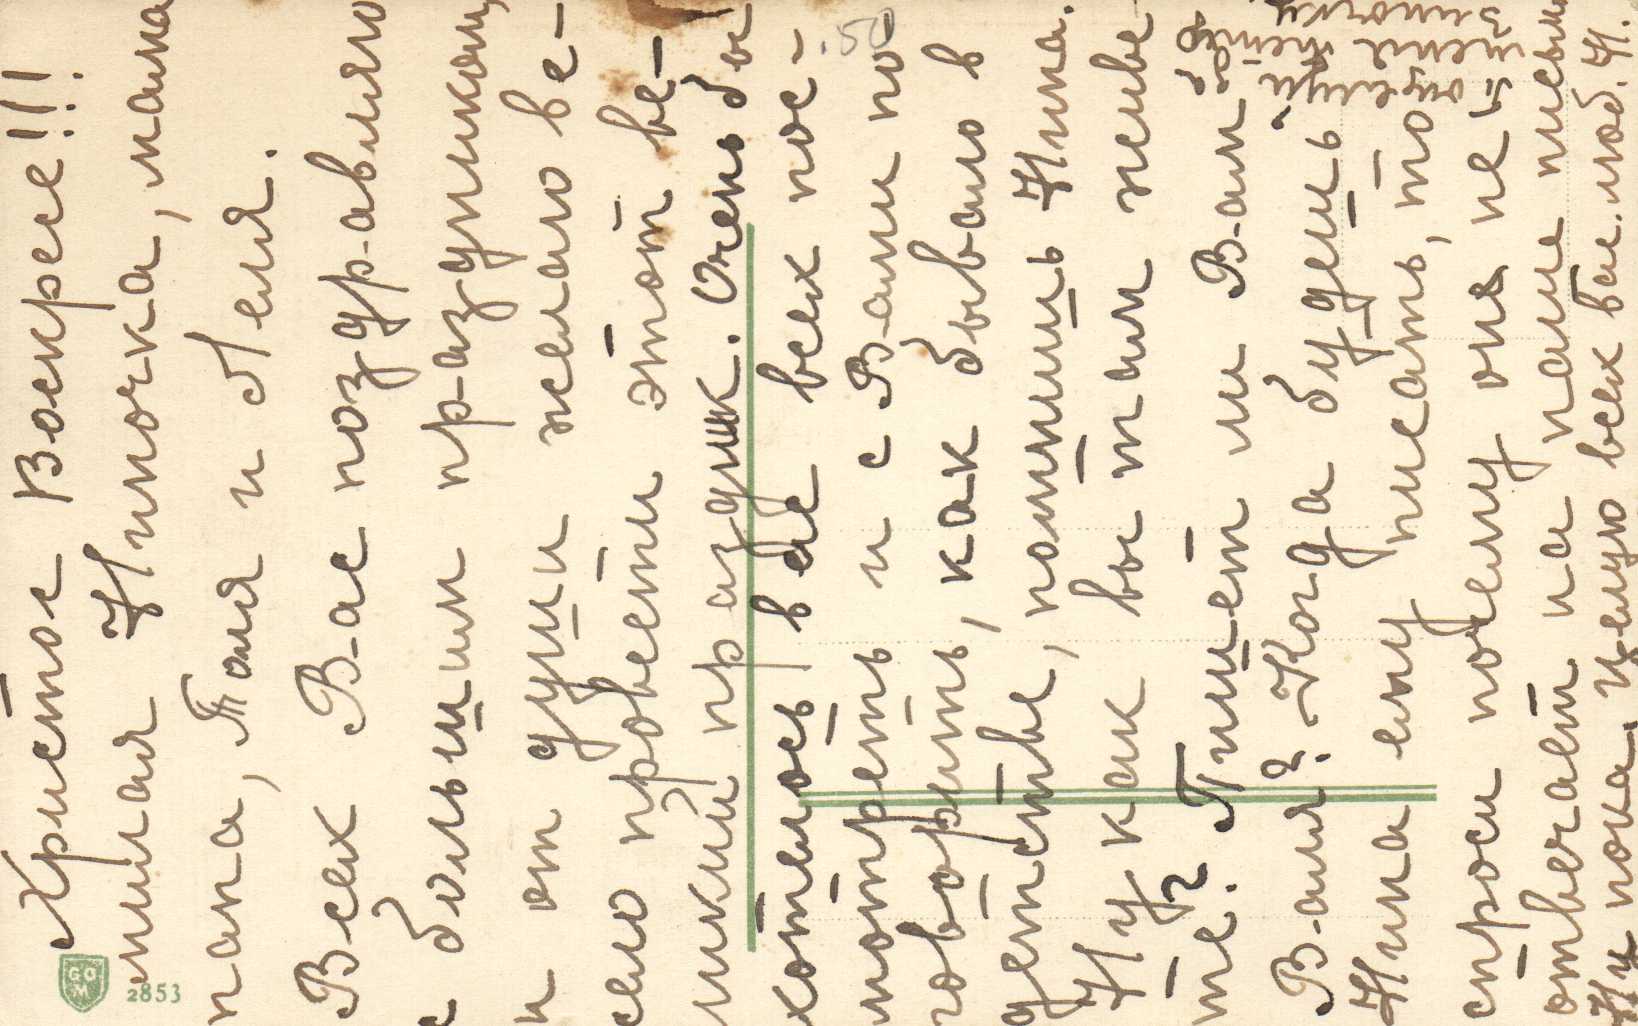 Христос Воскресе!!!
милая Ниночка, мама
папа, Толя и Леля.
Всех Вас поздравляю
с большим праздником,
и от души желаю ве-
село провести этот ве-
ликий праздник. Очень бы
хотелось вас всех пос-
мотреть и с Вами по
говорить, как бывало в
детстве, помнишь Нина.
Ну как вы там живе
те? Пишет ли Вам
Валя? Когда будешь
Нина ему писать, то
спроси почему он не
отвечает на наше письмо
Ну пока, целую всех вас. люб. Н.
50
GOM
2853